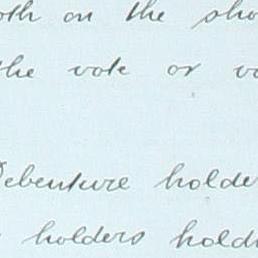 oth on the sho
the vote or vo
Debenture holde
holders holdi